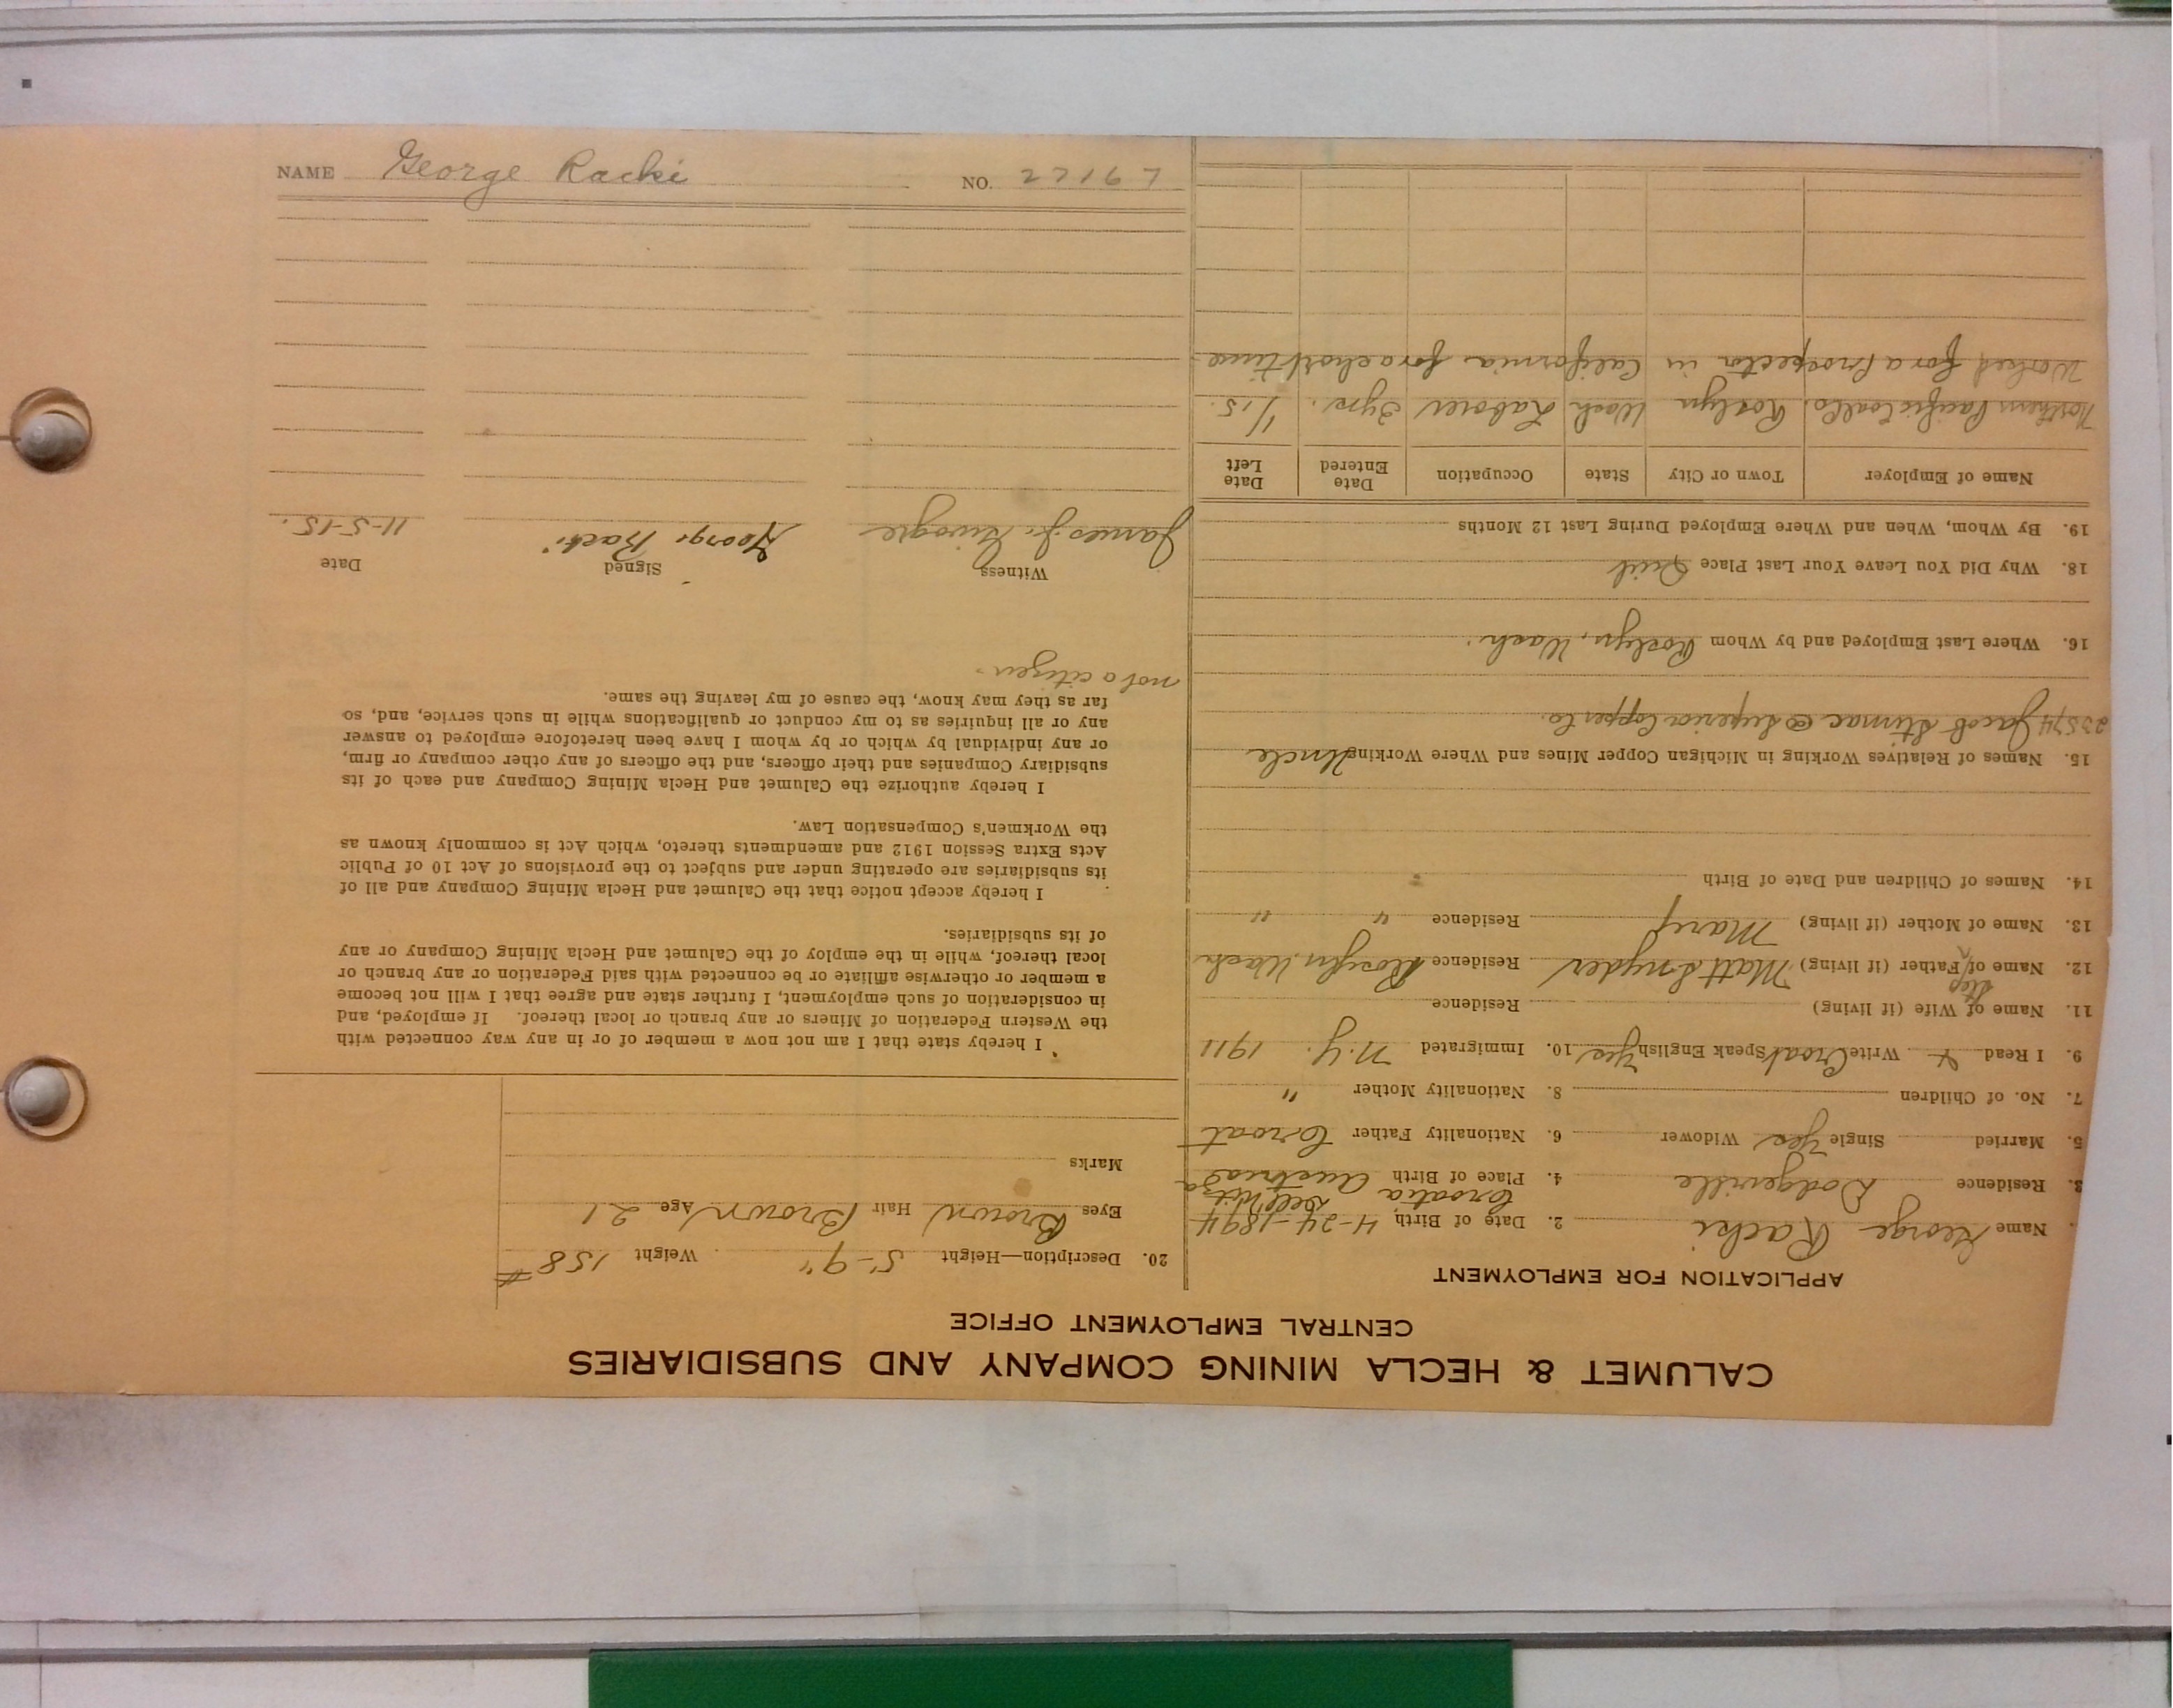 NAME George Racki NO. 22167
CALUMET & HECLA MINING COMPANY AND SUBSIDIARIES
CENTRAL EMPLOYMENT OFFICE
APPLICATION FOR EMPLOYMENT
Name George Racki 2. Date of Birth 4-24-1894
Croatia
3. Residence Dodgeville 4. Place of Birth Austria
5. Married Single Yes Widower 6. Nationality Father Croat
7. No. of Children 8. Nationality Mother "
9. I Read & Write Croat Speak English Yes 10. Immigrated N.Y. 1911
11. Name of Wife (if living) Residence
Step
12. Name of Father (if living) Matt Snyder Residence Roslyn Wash
13. Name of Mother (if living) Mary Residence " "
14. Names of Children and Date of Birth
15. Names of Relatives Working in Michigan Copper Mines and Where Working Uncle
Jacob Stimac @ Superior Copper Co.
16. Where Last Employed and by Whom Roslyn, Wash.
18. Why Did You Leave Your Last Place Quit
19. By Whom, When and Where Employed During Last 12 Months
Name of Employer Town or City State Occupation Date Entered Date Left
Northern Pacific Coal Co. Roslyn Wash Laborer 3 yrs. 1/15.
Worked for a Prospector in California for a short time
20. Description—Height 5'-9" Weight 158 #
Eyes Brown Hair Brown Age 21
Marks
I hereby state that I am not now a member of or in any way connected with
the Western Federation of Miners or any branch or local thereof. If employed, and
in consideration of such employment, I further state and agree that I will not become
a member or otherwise affiliate or be connected with said Federation or any branch or
local thereof, while in the employ of the Calumet and Hecla Mining Company or any
of its subsidiaries.
I hereby accept notice that the Calumet and Hecla Mining Company and all of
its subsidiaries are operating under and subject to the provisions of Act 10 of Public
Acts Extra Session 1912 and amendments thereto, which Act is commonly known as
the Workmen's Compensation Law.
I hereby authorize the Calumet and Hecla Mining Company and each of its
subsidiary Companies and their officers, and the officers of any other company or firm,
or any individual by which or by whom I have been heretofore employed to answer
any or all inquiries as to my conduct or qualifications while in such service, and, so
far as they may know, the cause of my leaving the same.
not a citizen.
Witness Signed Date
James George Racki 11-5-15.